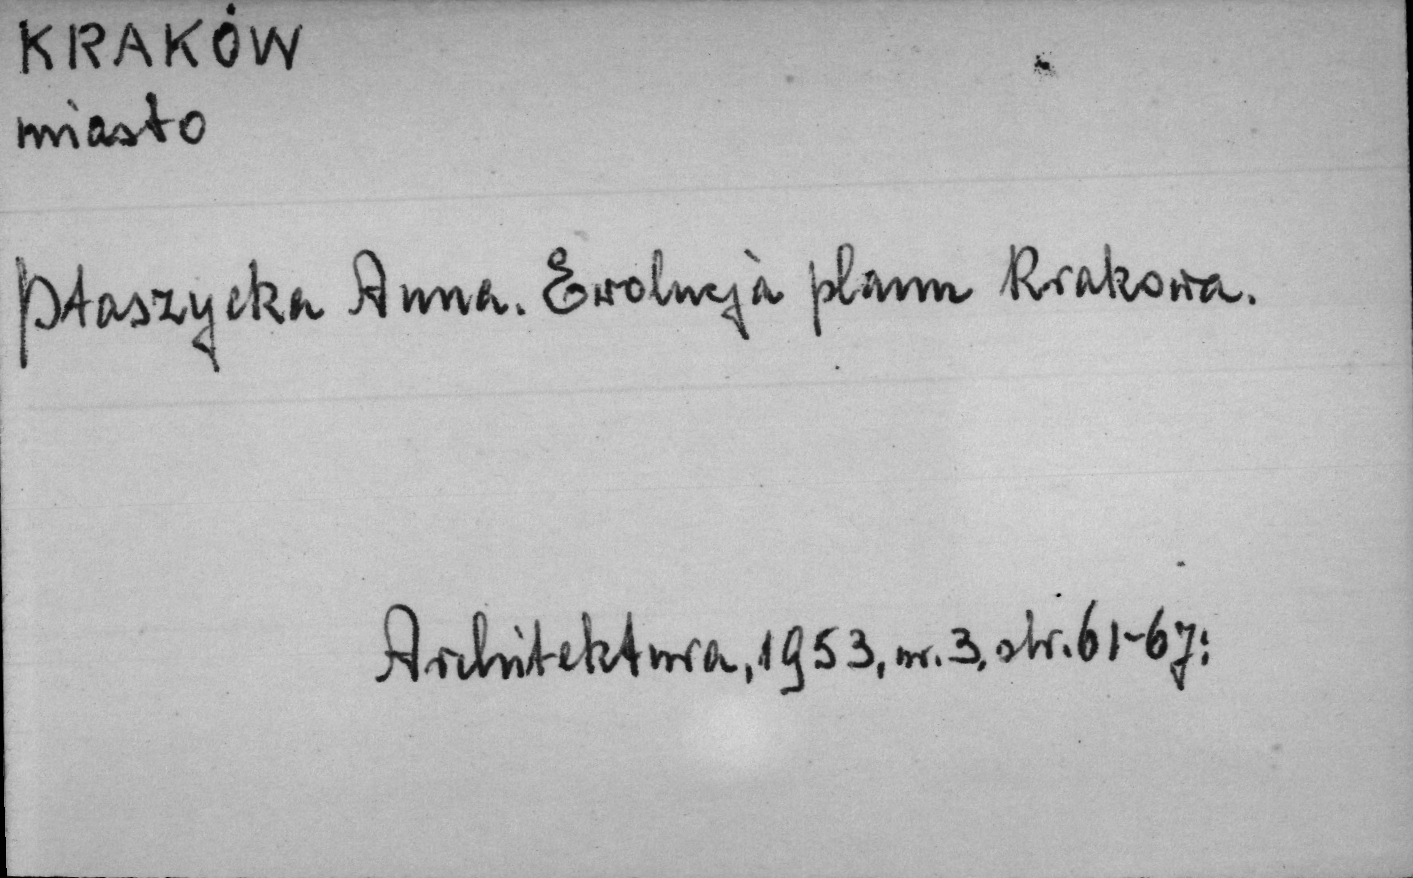 KRAKÓW
miasto
Ptaszycka Anna. Ewolucja planu Krakowa.
Architektura, 1953, nr. 3, str. 61-67: